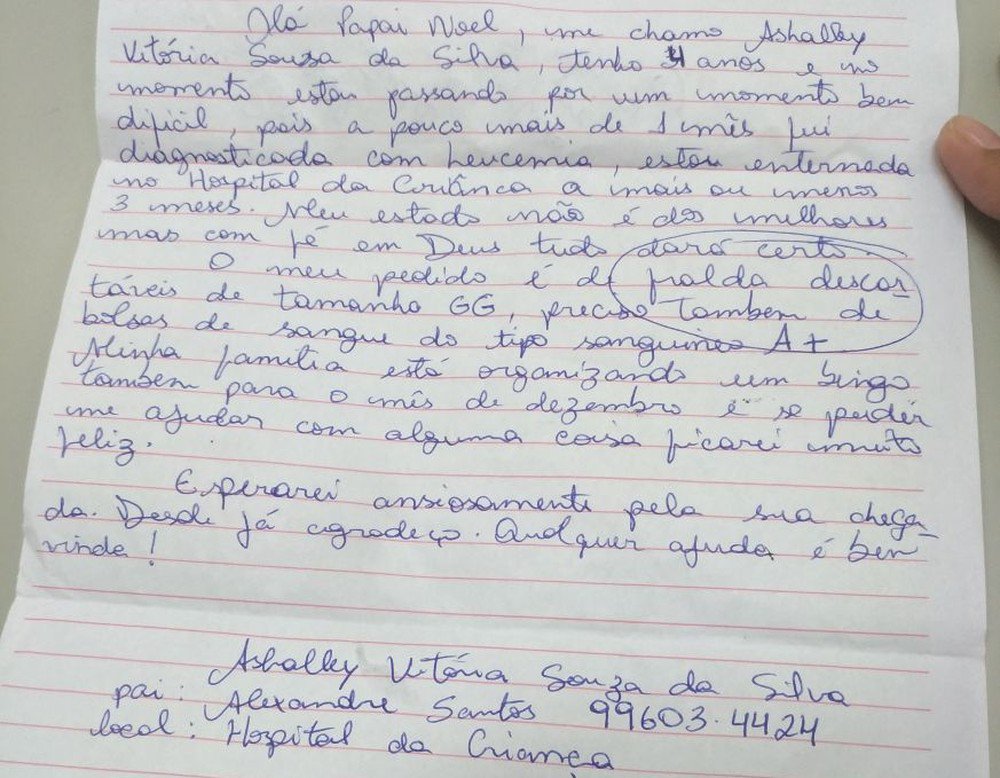 Olá Papai Noel, me chamo Ashalley
Vitória Souza da Silva, tenho 4 anos e no
momento estou passando por um momento bem
dificil, pois a pouco mais de 1 mês fui
diagnosticada com Leucemia, estou enternada
no Hospital da Criânca a mais ou menos
3 meses. Meu estado não é dos melhores
mas com fé em Deus tudo dará certo.
O meu pedido é de fralda descar
táveis de tamanho GG, preciso também de
bolsas de sangue do tipo sanguineo A+
Minha família está organizando um bingo
também para o mês de dezembro e se puder
me ajudar com alguma coisa ficarei muito
feliz.
Esperarei ansiosamente pela sua chega
da. Desde já agradeço. Qualquer ajuda é bem
vinda!
Ashalley Vitória Souza da Silva
pai: Alexandre Santos 99603-4424
local: Hospital da Criança